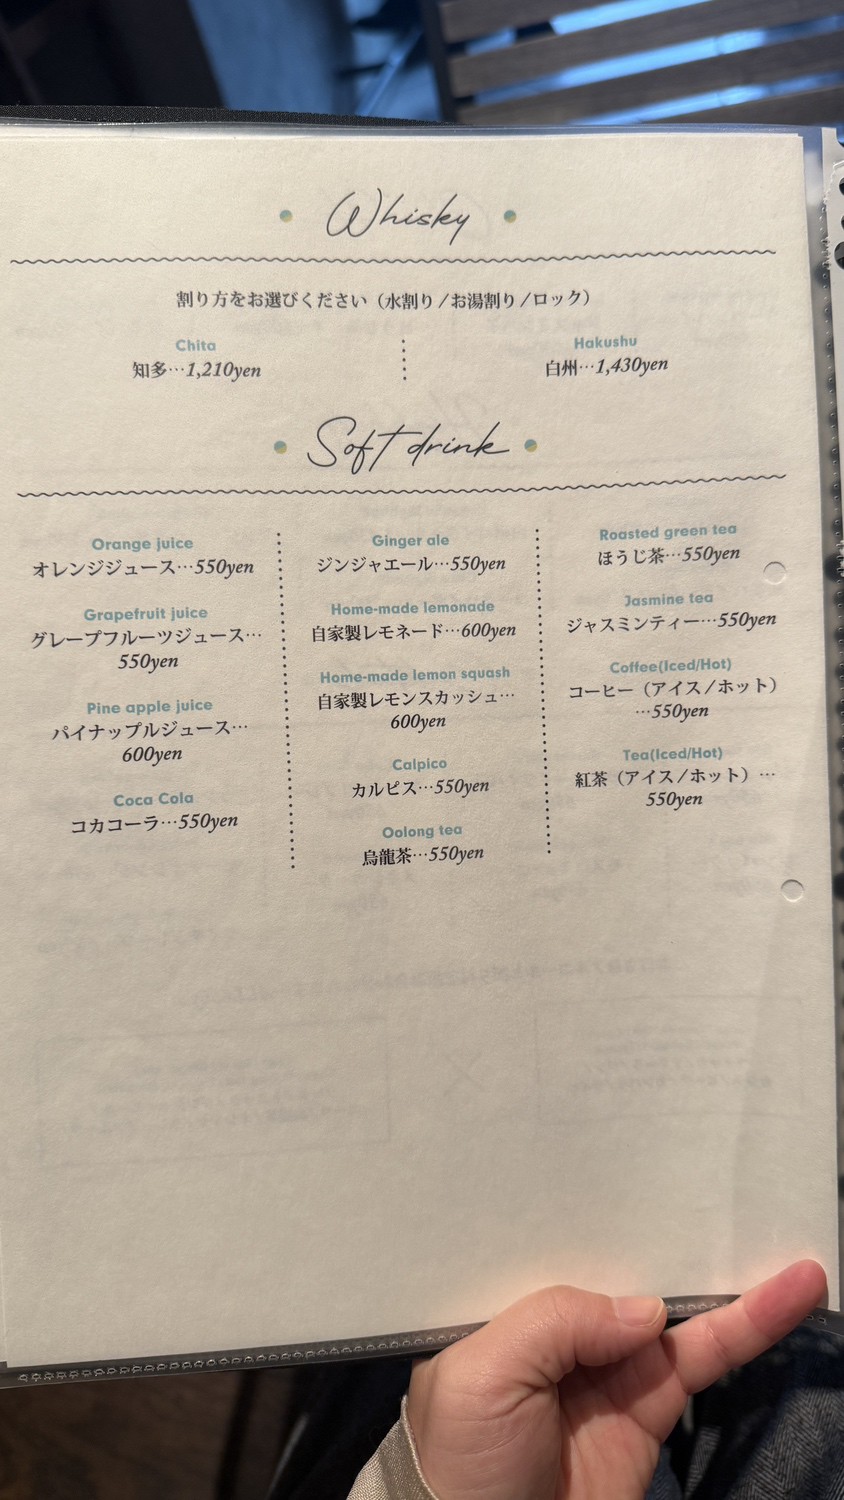 Whisky
割り方をお選びください（水割り/お湯割り/ロック）
Chita
知多…1,210yen
Hakushu
白州…1,430yen
Soft drink
Orange juice
オレンジジュース…550yen
Grapefruit juice
グレープフルーツジュース…
550yen
Pine apple juice
パイナップルジュース…
600yen
Coca Cola
コカコーラ…550yen
Ginger ale
ジンジャエール…550yen
Home-made lemonade
自家製レモネード…600yen
Home-made lemon squash
自家製レモンスカッシュ…
600yen
Calpico
カルピス…550yen
Oolong tea
烏龍茶…550yen
Roasted green tea
ほうじ茶…550yen
Jasmine tea
ジャスミンティー…550yen
Coffee(Iced/Hot)
コーヒー（アイス/ホット）
…550yen
Tea(Iced/Hot)
紅茶（アイス/ホット）…
550yen